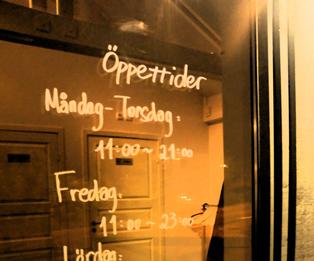 Öppettider
Måndag-Torsdag:
11:00~21:00
Fredag.
11:00~23:00
Lördag: